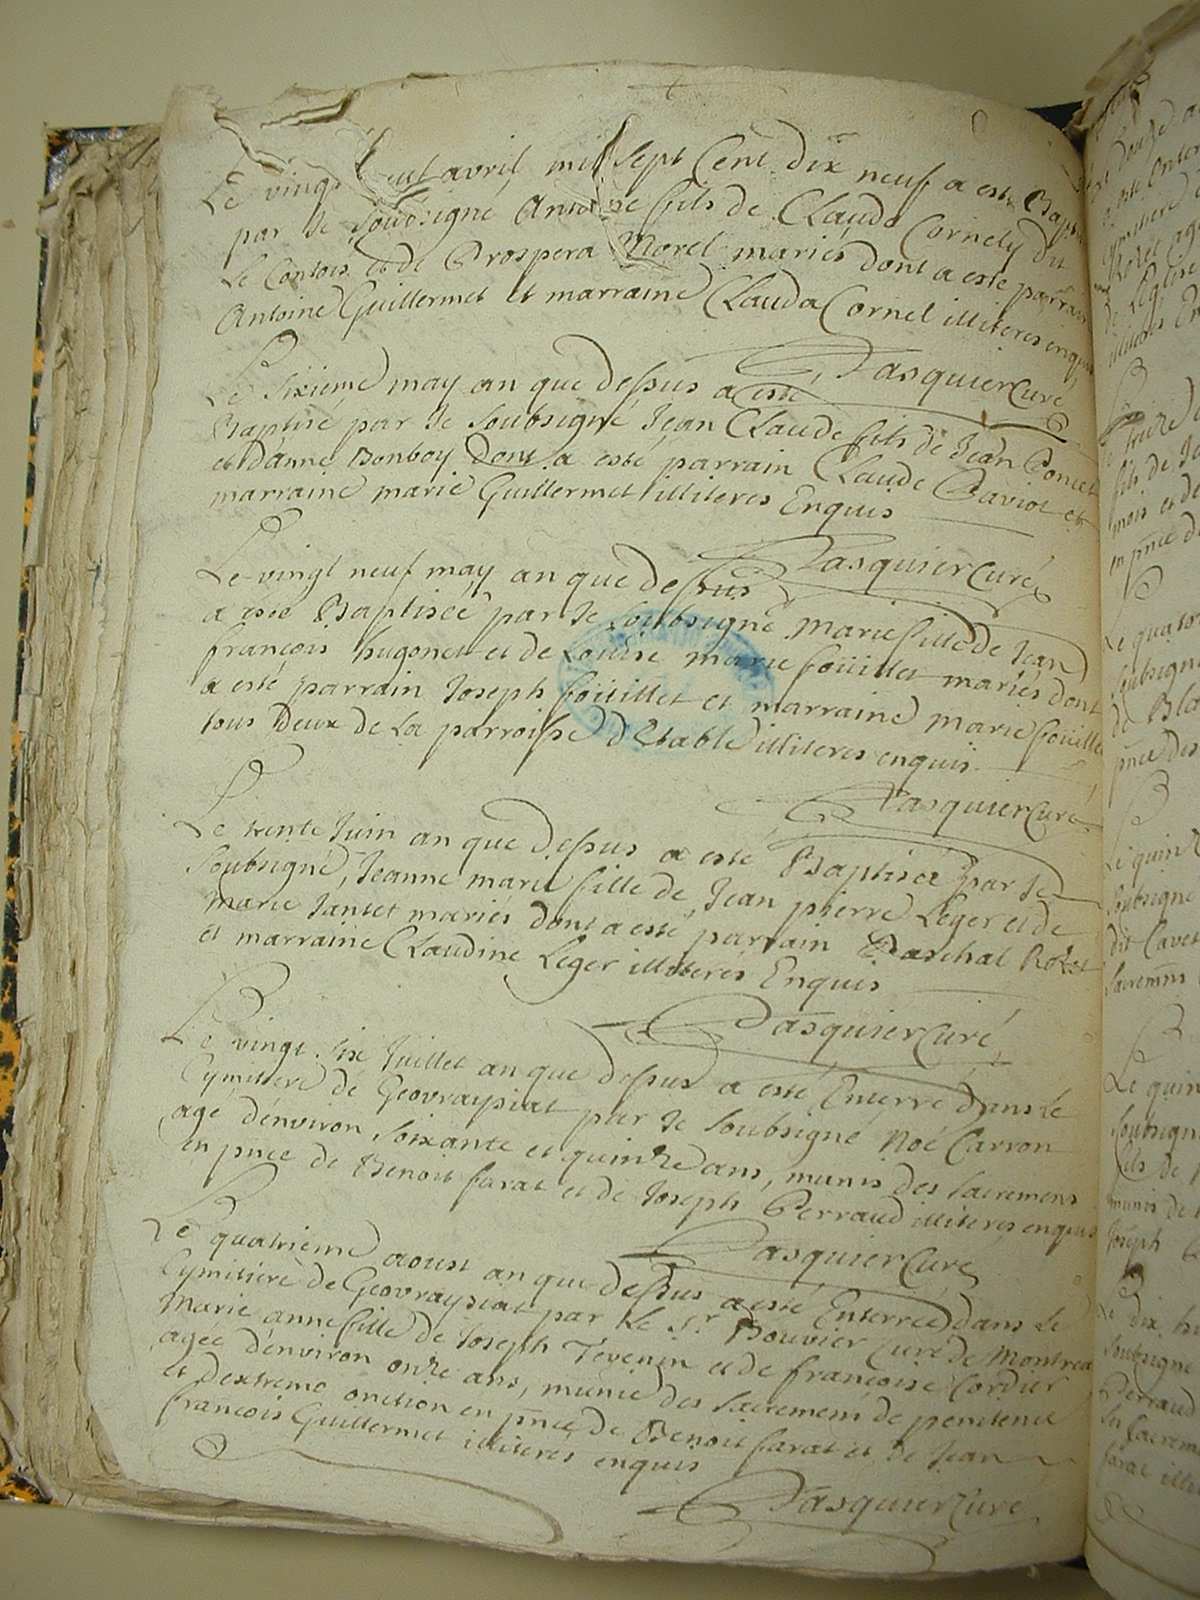 Le vingt huit avril mil sept Cent dix neuf a esté Bapt
par Je Soubsigné Antoine fils de Claude Cornely dit
Le Contois et de Prospera Morel mariés dont a esté parrain
Antoine Guillermet et marraine Clauda Cornel illiteres enquis
Pasquier Curé
Le Sixieme may an que dessus a esté
Baptisé par Je Soubsigné Jean Claude fils de Jean Poncet
et d'anne Bonboy dont a esté parrain Claude Caviot et
marraine marie Guillermet illiteres Enquis
Pasquier Curé
Le vingt neuf may an que dessus
a esté Baptisée par Je Soubsigné Marie fille de Jean
françois hugonet et de Louise marie foüillet mariés dont
a esté parrain Joseph foüillet et marraine marie foüille
tous deux de la parroisse d'Etable illiteres enquis
Pasquier Curé
Le trente Juin an que dessus a esté Baptisée par Je
Soubsigné, Jeanne marie fille de Jean pierre Leger et de
Marie Jantet mariés dont a esté parrain Paschal Rozet
et marraine Claudine Leger illiteres Enquis
Pasquier Curé
Le vingt six Juillet an que dessus a esté Enterré dans Le
Cymitiere de Geovraysiat par Je Soubsigné Noé Carron
agé d'environ Soixante et quinze ans, munis des Sacremens
en pnce de Benoit farat et de Joseph Perraud illiteres enquis
Pasquier Curé
Le quatrieme aoust an que dessus a esté Enterrée dans Le
Cymitiere de Geovraysiat par Le Sr Bouvier Curé de Montrea
Marie anne fille de Joseph Tevenin et de françoise Cordier
agée d'environ onze ans, munie des Sacremens de penitence
et d'extreme onction en pnce de Benoit farat et de Jean
francois Guillermet illiteres enquis
Pasquier Curé